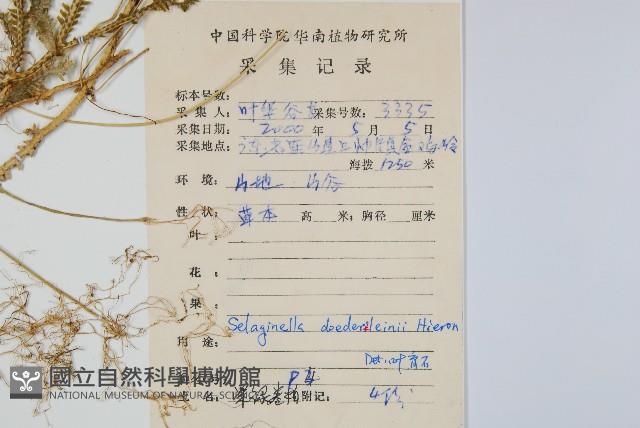 中国科学院华南植物研究所
采集记录
标本号数:
采集人: 叶华谷 采集号数: 3335
采集日期: 2000 年 5 月 5 日
采集地点:
海拨 1250 米
环境: 山地 山谷
性状: 草本 高 米; 胸径 厘米
叶:
花:
果:
Selaginella doederleinii Hieron
用途:
Det: 叶育石
名: 附记:
國立自然科學博物館
NATIONAL MUSEUM OF NATURAL SCIENCE